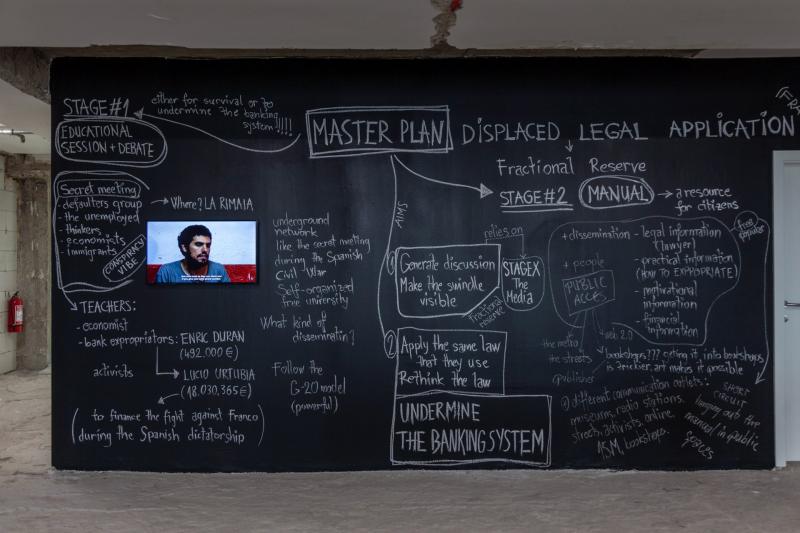 STAGE#1
either for survival or to
undermine the banking
system!!!!
EDUCATIONAL
SESSION + DEBATE
MASTER PLAN
DISPLACED LEGAL APPLICATION
Fractional Reserve
STAGE#2
MANUAL
a resource
for citizens
Secret meeting
- defaulters group
- the unemployed
- thinkers
- economists
- immigrants
CONSPIRACY
VIBE
Where? LA RIMAIA
underground
network
like the secret meeting
during the Spanish
Civil War
Self-organized
free university
What kind of
dissemination?
Follow the
G-20 model
(powerful)
TEACHERS:
- economist
- bank expropriators: ENRIC DURAN
(492.000 €)
activists
LUCIO URTUBIA
(18.030,365 €)
(to finance the fight against Franco
during the Spanish dictatorship)
AIMS
relies on
1
Generate discussion
Make the swindle
visible
STAGEX
The
Media
Fractional
reserve
2
Apply the same law
that they use
Rethink the law
UNDERMINE
THE BANKING SYSTEM
+ dissemination
+ people
PUBLIC
ACCES
- legal information
(lawyer)
- practical information
(HOW TO EXPROPRIATE)
- motivational
information
- financial
information
free
the metro
the streets
web 2.0
publisher
bookshops??? getting it into bookshops
is trickier, art makes it possible
different communication artists:
museums, radio stations,
streets, activists, online,
bookshops
SHORT
CIRCUIT
out the
manual in public
spaces